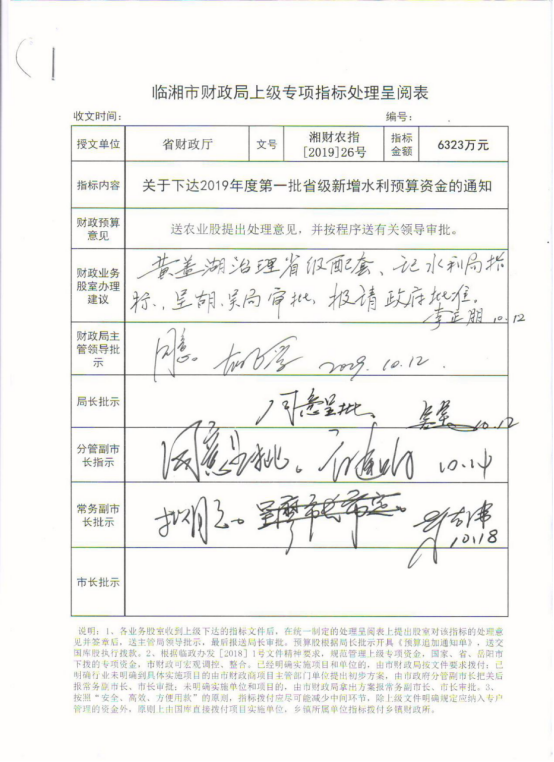 临湘市财政局上级专项指标处理呈阅表
收文时间： 编号：
授文单位 省财政厅 文号 湘财农指[2019]26号 指标金额 6323万元
指标内容 关于下达2019年度第一批省级新增水利预算资金的通知
财政预算意见 送农业股提出处理意见，并按程序送有关领导审批。
财政业务股室办理建议 黄盖湖治理省级配套、记水利局指
标，呈胡、吴局审批，报请政府批准。
10.12
财政局主管领导批示 同意。 2019.10.12
局长批示 同意呈批、 10.12
分管副市长指示 同意呈批。 10.14
常务副市长批示 拟同意。
10.18
市长批示
说明：1、各业务股室收到上级下达的指标文件后，在统一制定的处理呈阅表上提出股室对该指标的处理意
见并签章后，送主管局领导批示，最后报送局长审批，预算股根据局长批示开具《预算追加通知单》，送交
国库股执行拨款。2、根据临政办发［2018］1号文件精神要求，规范管理上级专项资金，国家、省、岳阳市
下拨的专项资金，市财政可宏观调控、整合。已经明确实施项目和单位的，由市财政局按文件要求拨付；已
明确行业未明确到具体实施项目的由市财政商项目主管部门单位提出初步方案，由市政府分管副市长把关后
报常务副市长、市长审批；未明确实施单位和项目的，由市财政局拿出方案报常务副市长、市长审批。3、
按照“安全、高效、方便用款”的原则，指标拨付应尽可能减少中间环节，除上级文件明确规定应纳入专户
管理的资金外，原则上由国库直接拨付项目实施单位，乡镇所属单位指标拨付乡镇财政所。